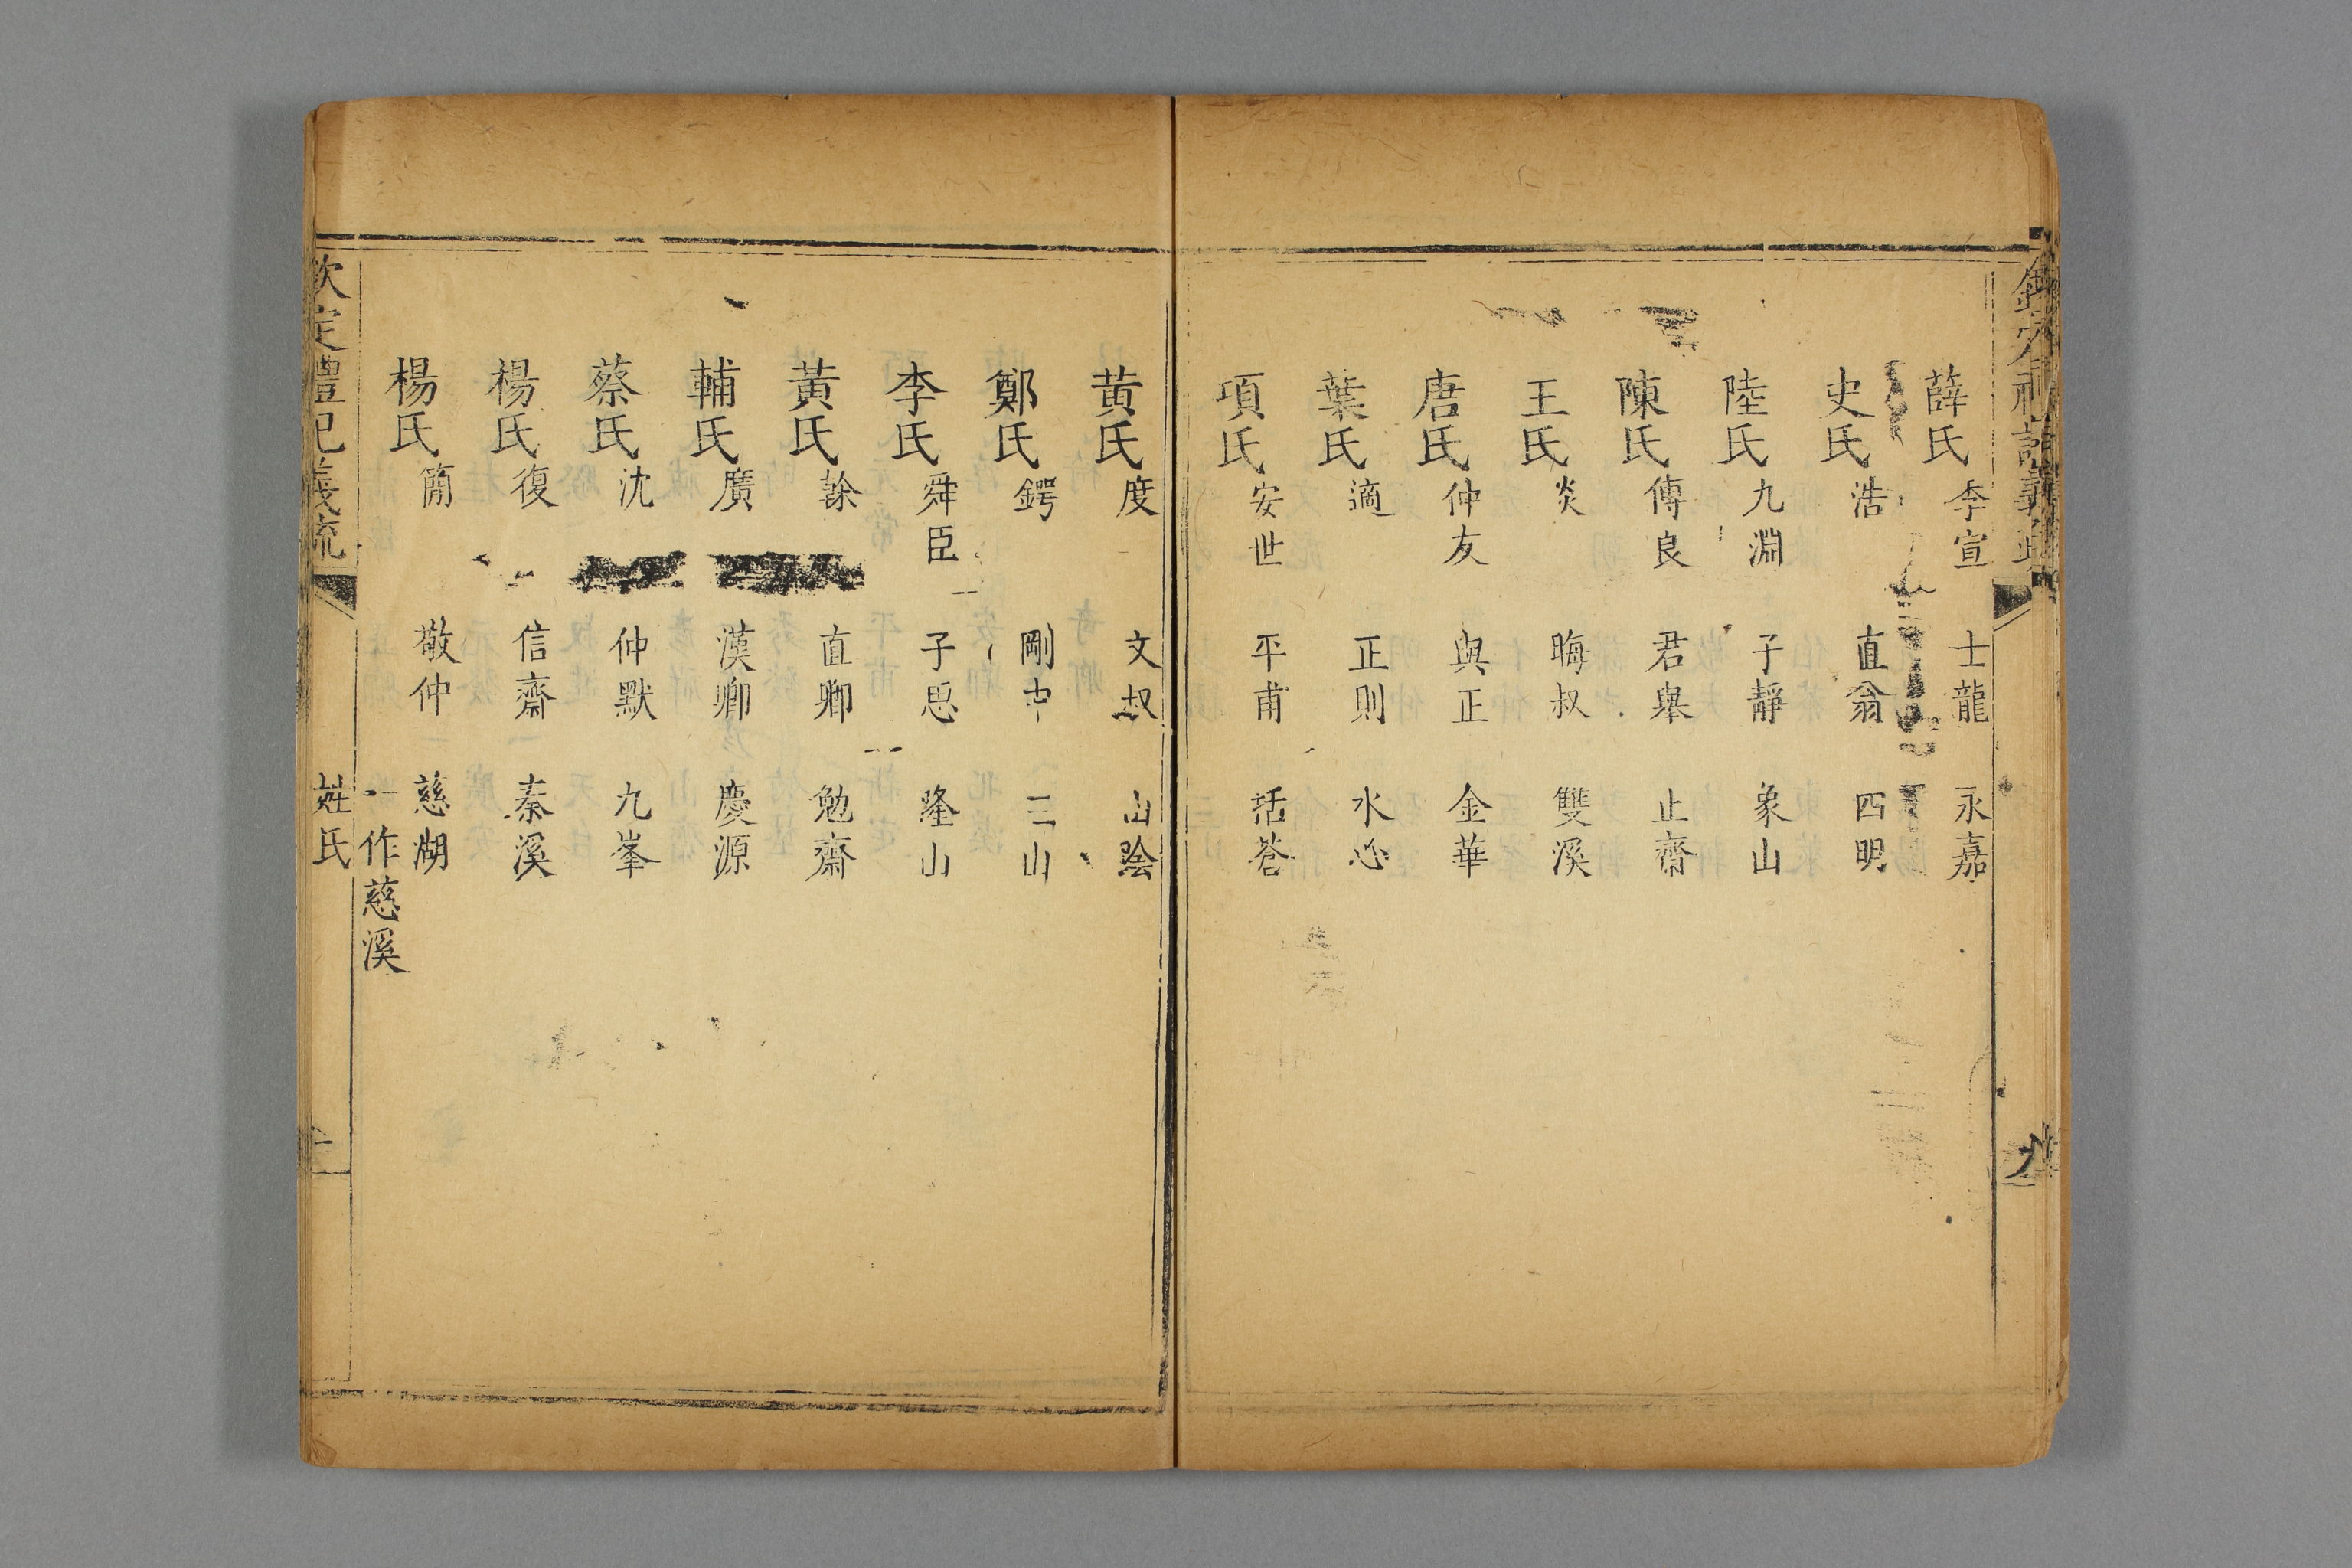 欽定禮記義疏
薛氏 季宣 士龍 永嘉
史氏 浩 直翁 四明
陸氏 九淵 子靜 象山
陳氏 傅良 君舉 止齋
王氏 炎 晦叔 雙溪
唐氏 仲友 與正 金華
葉氏 適 正則 水心
項氏 安世 平甫 括蒼
黃氏 度 文叔 山陰
鄭氏 鍔 剛中 三山
李氏 舜臣 子思 隆山
黃氏 榦 直卿 勉齋
輔氏 廣 漢卿 慶源
蔡氏 沈 仲默 九峯
楊氏 復 信齋 秦溪
楊氏 簡 敬仲 慈湖 一作慈溪
欽定禮記義疏 姓氏